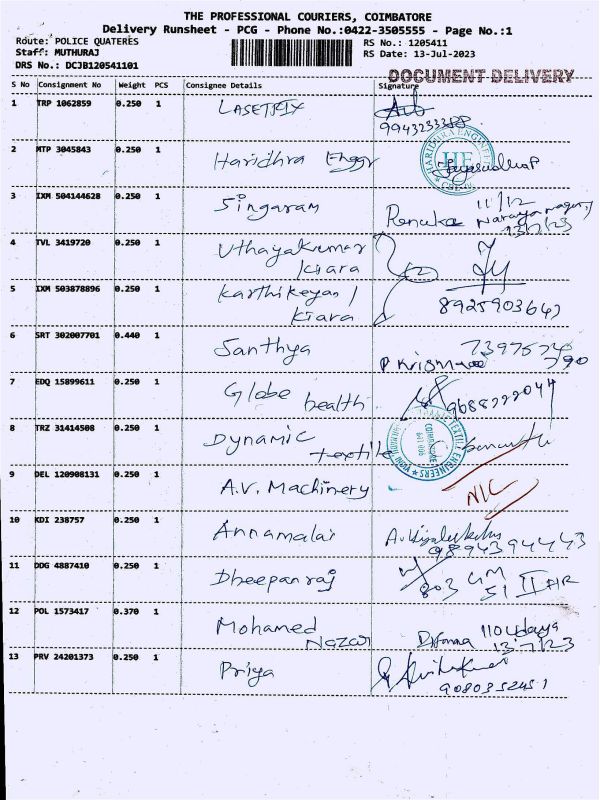 THE PROFESSIONAL COURIERS, COIMBATORE
Delivery Runsheet - PCG - Phone No.:0422-3505555 - Page No.:1
Route: POLICE QUATERES
RS No.: 1205411
Staff: MUTHURAJ
RS Date: 13-Jul-2023
DRS No.: DCJB120541101
DOCUMENT DELIVERY
S No Consignment No Weight PCS Consignee Details Signature
1 TRP 1062859 0.250 1 LASETRIX
2 MTP 3045843 0.250 1 Haridhra Enggr
HE
3 IXM 504144628 0.250 1 Singaram
Renuka 11/12
13/7/23
4 TVL 3419720 0.250 1 Uthayakumar
kiara
5 IXM 503878896 0.250 1 Karthikeyan /
kiara
8925903647
6 SRT 302007701 0.440 1 Santhya
7 EDQ 15899611 0.250 1 Globe health
9688222044
8 TRZ 31414508 0.250 1 Dynamic
textile
9 DEL 120908131 0.250 1 A.V. Machinery
N/C
10 KDI 238757 0.250 1 Annamalai
9894394443
11 DDG 4887410 0.250 1 Dheepanraj
12 POL 1573417 0.370 1 Mohamed
Nazar
13/7/23
13 PRV 24201373 0.250 1 Priya